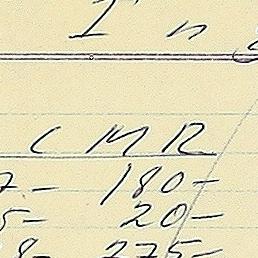 I n
C M R
7- 180-
5- 20-
8- 275-